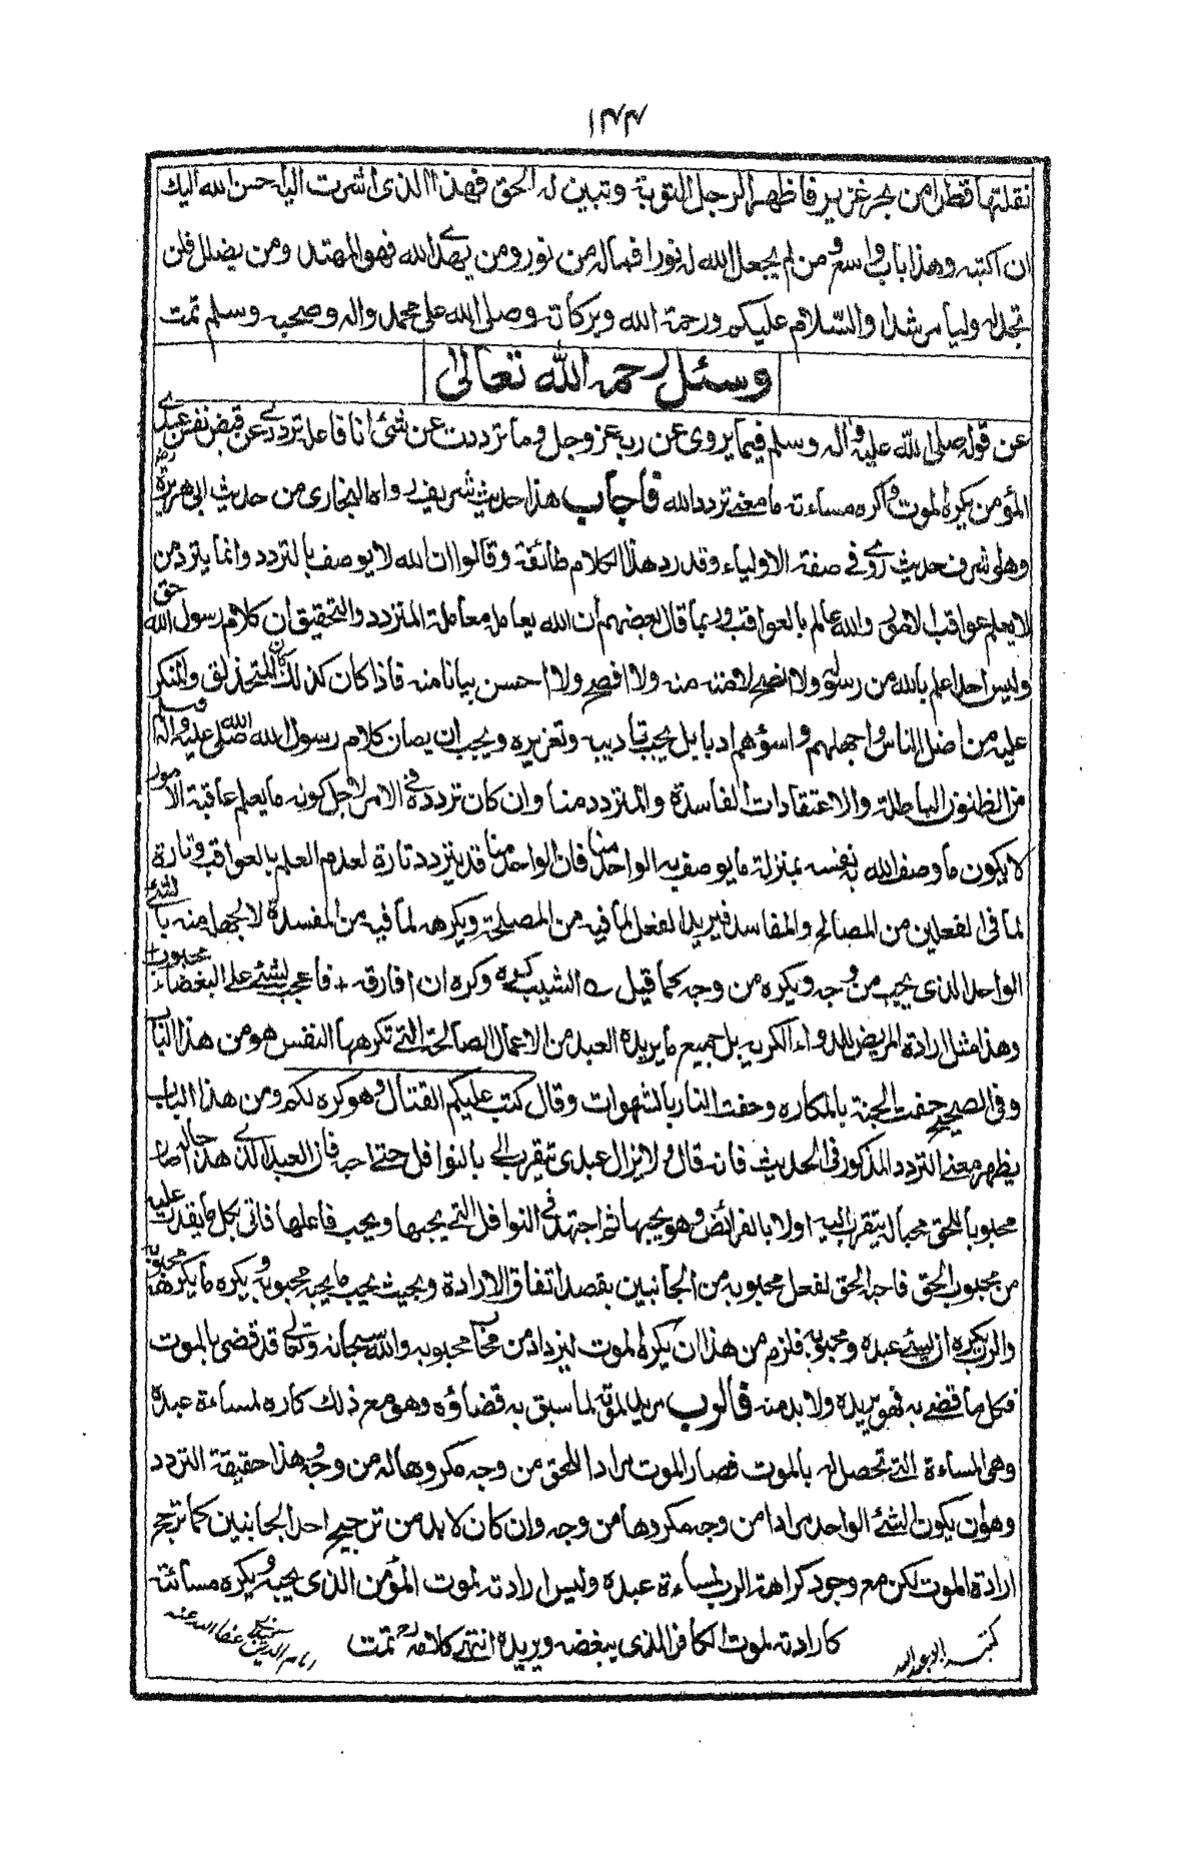 ١٣٣
نقلتها قطرا من بحر غزير فاظهر الرجل التوبة وتبين له الحق فهذا الذى اشرت اليا حسن الله اليك
ان اكتبه وهذا باب واسع ومن لم يجعل الله له نورا فماله من نور ومن يهدى الله فهو المهتد ومن يضلل فلن
تجد له وليا مرشدا والسلام عليكم ورحمة الله وبركاته وصلى الله على محمد واله وصحبه وسلم تمت
وسئل رحمه الله تعالى
عن قوله صلى الله عليه واله وسلم فيما يروى عن ربه عز وجل وما ترددت عن شئ انا فاعله ترددى عن قبض نفس عبدى
المؤمن يكره الموت واكره مساءته ما معنى تردد الله فاجاب هذا حديث شريف رواه البخارى من حديث ابى هريرة رض
وهو اشرف حديث روى فى صفة الاولياء وقد رد هذا الكلام طائفة وقالوا ان الله لا يوصف بالتردد وانما يتردد من
لا يعلم عواقب الامور والله عالم بالعواقب وربما قال بعضهم ان الله يعامل معاملة المتردد والتحقيق ان كلام رسول الله حق
وليس احد اعلم بالله من رسوله ولا انصح لامته منه ولا افصح ولا احسن بيانا منه فاذا كان كذلك كان المتحذلق والمنكر
عليه من اضل الناس واجهلهم واسوؤهم ادبا بل يجب تاديبه وتعزيره ويجب ان يصان كلام رسول الله صلى الله عليه واله وسلم
عن الظنون الباطلة والاعتقادات الفاسدة والمتردد منا وان كان تردده فى الامر لاجل كونه ما يعلم عاقبة الامور
لا يكون ما وصف الله به نفسه بمنزلة ما يوصف به الواحد منا فان الواحد منا قد يتردد تارة لعدم العلم بالعواقب وتارة
لما فى الفعلين من المصالح والمفاسد فيريد الفعل لما فيه من المصلحة ويكرهه لما فيه من المفسدة لا لجهله منه بالشئ
الواحد الذى يحب من وجه ويكره من وجه كما قيل الشيب كره وكره ان افارقه + فاعجب لشئ على البغضاء محبوب +
وهذا مثل ارادة المريض للدواء الكريه بل جميع ما يريده العبد من الاعمال الصالحة التى تكرهها النفس هو من هذا الباب
وفى الصحيح حفت الجنة بالمكاره وحفت النار بالشهوات وقال كتب عليكم القتال وهو كره لكم ومن هذا الباب
يظهر معنى التردد المذكور فى الحديث فانه قال ولا يزال عبدى يتقرب الى بالنوافل حتى احبه فان العبد الذى هذا حاله صار
محبوبا للحق محبا له يتقرب اليه اولا بالفرائض وهو يحبها ثم اجتهد فى النوافل التى يحبها ويحب فاعلها فاتى بكل ما يقدر عليه
من محبوب الحق فاحبه الحق لفعل محبوبه من الجانبين بقصد اتفاق الارادة وبحيث يحب ما يحبه محبوبه ويكره ما يكرهه محبوبه
والرب يكره ان يسئ عبده ومحبوبه فلزم من هذا ان يكره الموت ليزداد من محاب محبوبه والله سبحانه وتعالى قد قضى بالموت
فكل ما قضى به فهو يريده ولا بد منه فالرب يريد لموته لما سبق به قضاؤه وهو مع ذلك كاره لمساءة عبده
وهى المساءة التى تحصل له بالموت فصار الموت مرادا للحق من وجه مكروها له من وجه وهذا حقيقة التردد
وهو ان يكون الشئ الواحد مرادا من وجه مكروها من وجه وان كان لا بد من ترجيح احد الجانبين كما ترجح
ارادة الموت لكن مع وجود كراهة الرب لمساءة عبده وليس ارادته لموت المؤمن الذى يحبه ويكره مسائته
كارادته لموت الكافر الذى يبغضه ويريده انتهى كلامه رح تمت
كتبه ابو عبد الله
امام الدين عفا الله عنه